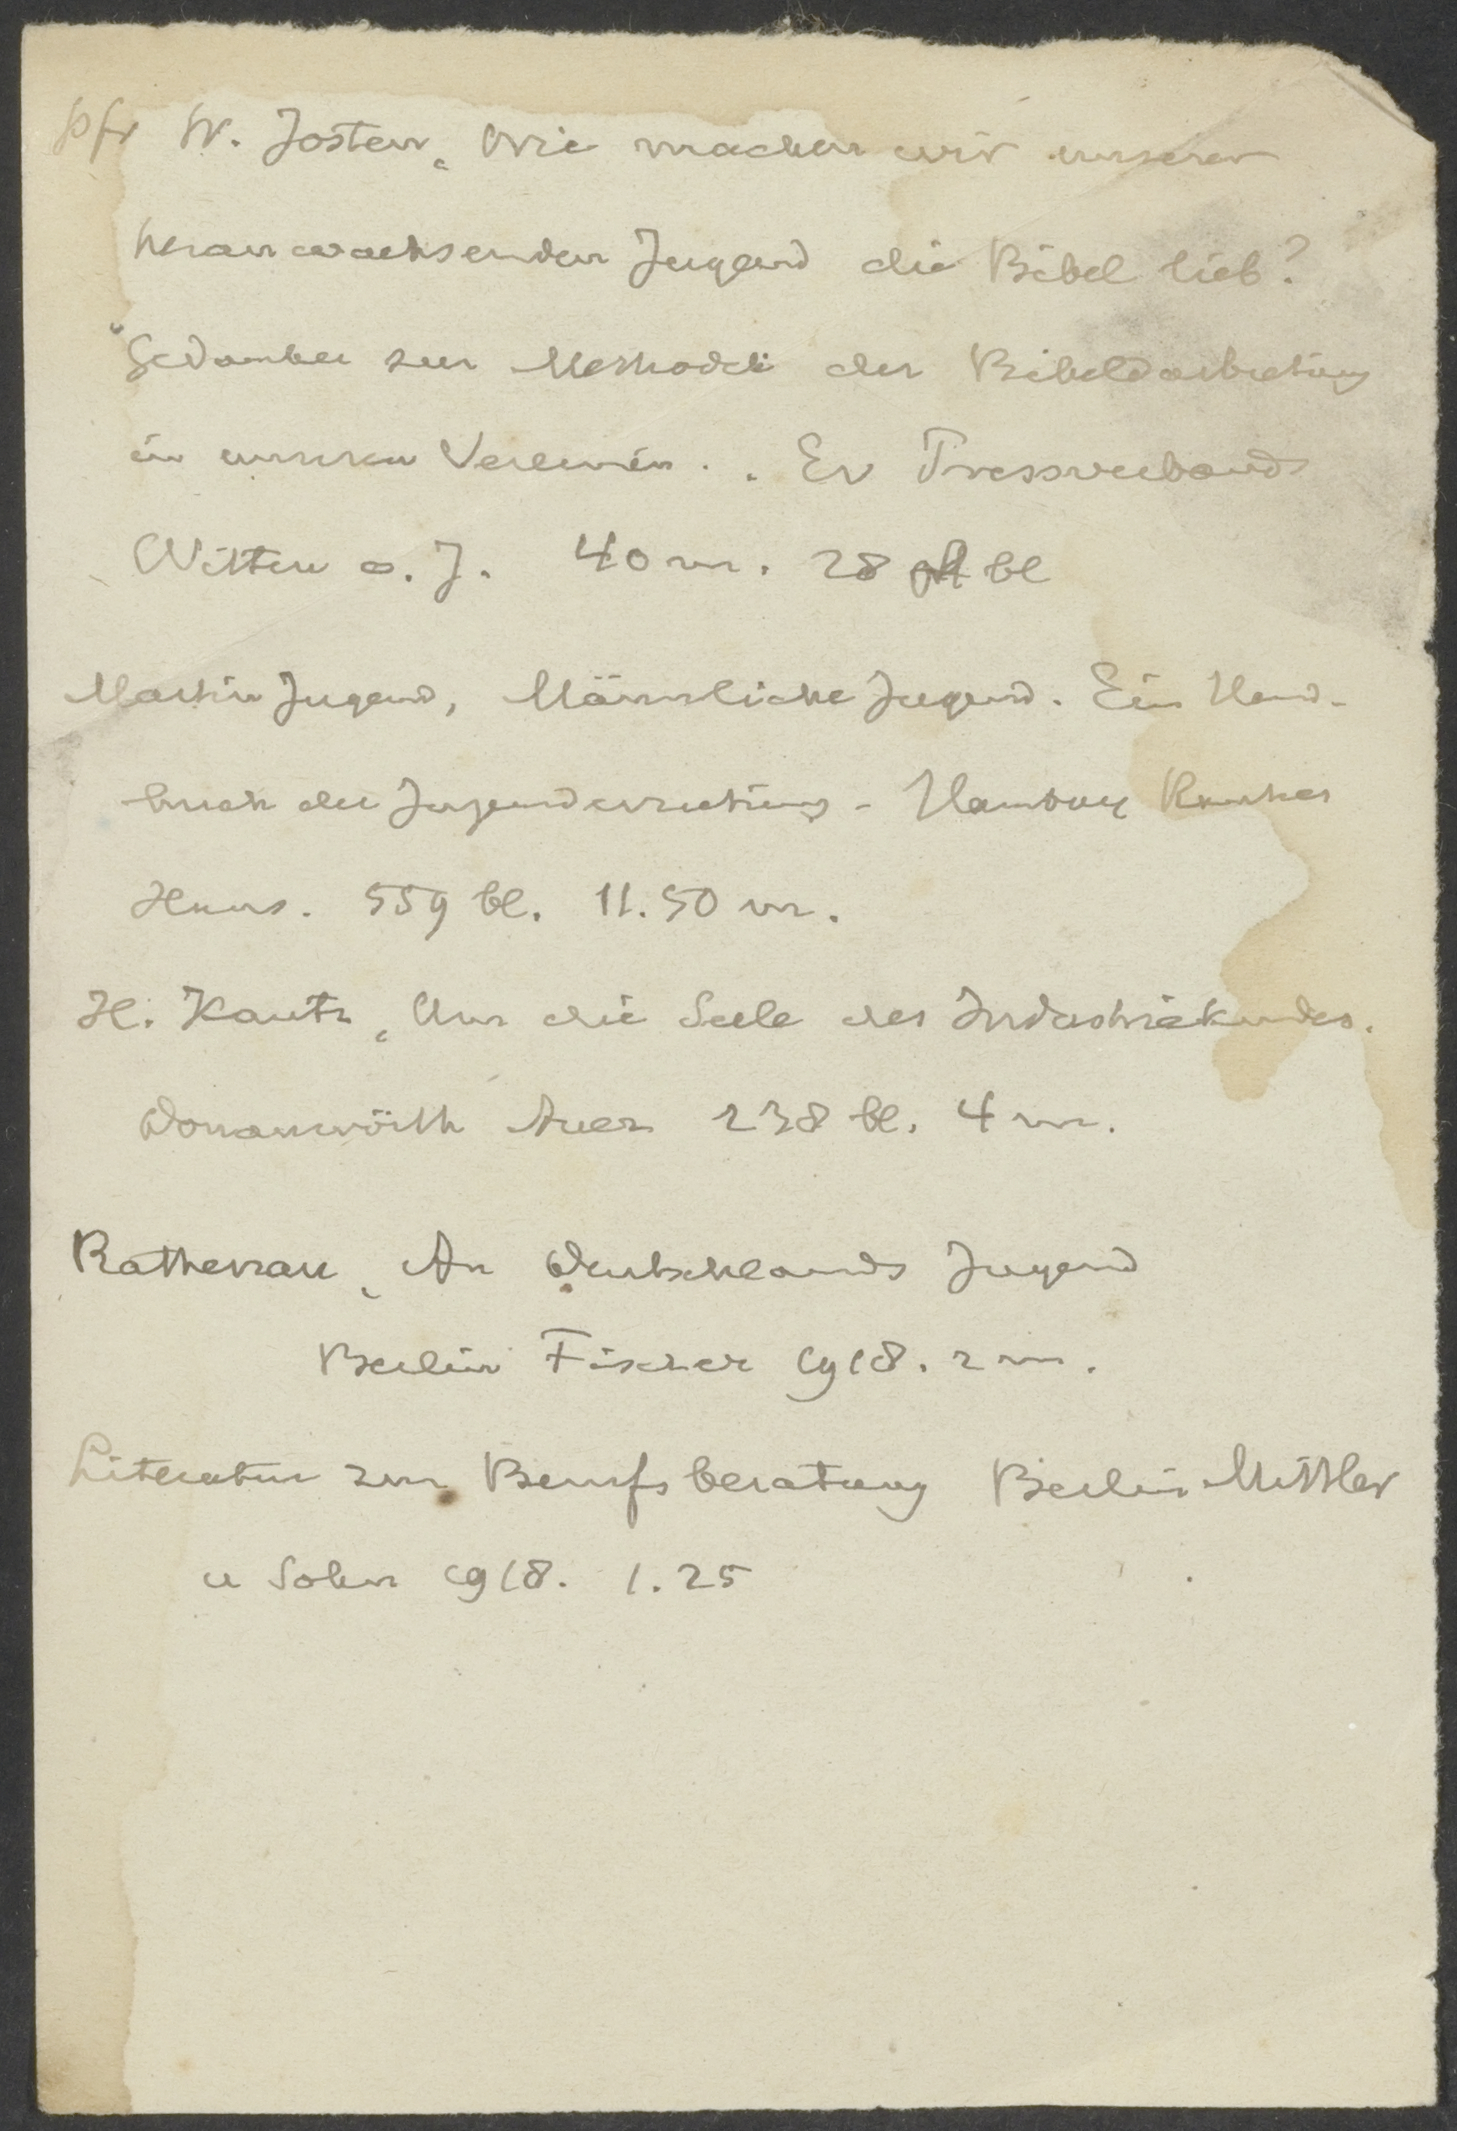 Pfr W. Josten, Wie machen wir unserer
heranwachsenden Jugend die Bibel lieb?
Gedanken zur Methodik der Bibeldarbietung
in unseren Vereinen. . Ev Pressverband
Witten o. J. 40 m. 28 bl
Martin Jugend, Männliche Jugend. Ein Hand-
buch der Jugenderziehung - Hamburg Rauhes
Haus. 559 bl. 11.50 m.
H. Kautz, Um die Seele des Industriekindes.
Donauwörth Auer 238 bl. 4 m.
Rathenau, An Deutschlands Jugend
Berlin Fischer 1918. 2 m.
Literatur zur Berufsberatung Berlin Mittler
u Sohn 1918. 1.25